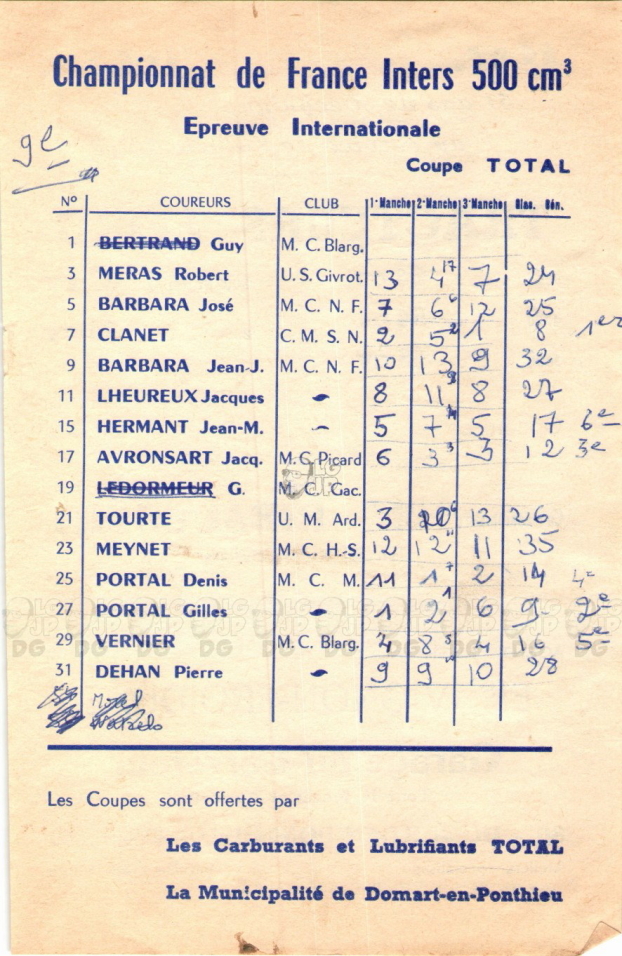 Championnat de France Inters 500 cm³
Epreuve Internationale
9e
Coupe TOTAL
N° COUREURS CLUB 1e Manche 2e Manche 3e Manche Clas. Gén.
1 BERTRAND Guy M. C. Blarg.
3 MERAS Robert U. S. Givrot. 13 4 17 7 24
5 BARBARA José M. C. N. F. 7 6 12 25
7 CLANET C. M. S. N. 2 5 2 1 8 1er
9 BARBARA Jean-J. M. C. N. F. 10 13 9 32
11 LHEUREUX Jacques " 8 11 8 27
15 HERMANT Jean-M. " 5 7 5 17 6e
17 AVRONSART Jacq. M. C. Picard 6 3 3 3 12 3e
19 LEDORMEUR G. M. C. Gac.
21 TOURTE U. M. Ard. 3 10 13 26
23 MEYNET M. C. H.-S. 12 12 11 35
25 PORTAL Denis M. C. M. 11 1 2 14 4e
27 PORTAL Gilles " 1 2 1 6 9 2e
29 VERNIER M. C. Blarg. 4 8 4 16 5e
31 DEHAN Pierre " 9 9 10 28
Les Coupes sont offertes par
Les Carburants et Lubrifiants TOTAL
La Municipalité de Domart-en-Ponthieu